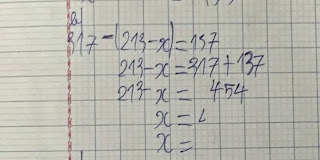 a)
317-(213-x)=137
213-x=317+137
213-x= 454
x=
x=